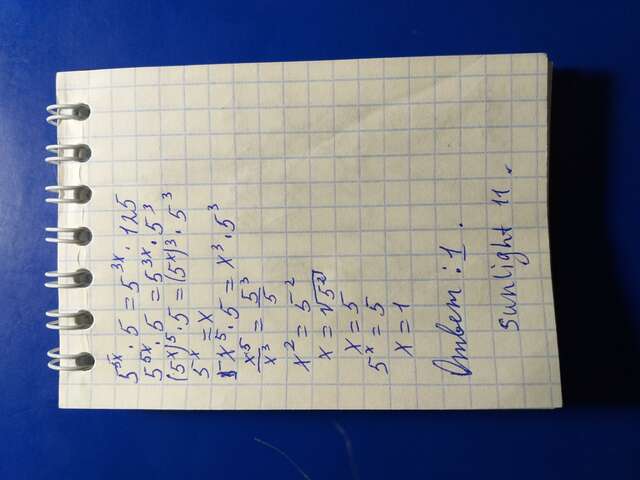 5^5x · 5 = 5^3x · 125
5^5x · 5 = 5^3x · 5^3
(5^x)^5 · 5 = (5^x)^3 · 5^3
5^x = x
x^5 · 5 = x^3 · 5^3
x^5/x^3 = 5^3/5
x^2 = 5^2
x = √5^2
x = 5
5^x = 5
x = 1
Ответ: 1.
Sunlight 11.